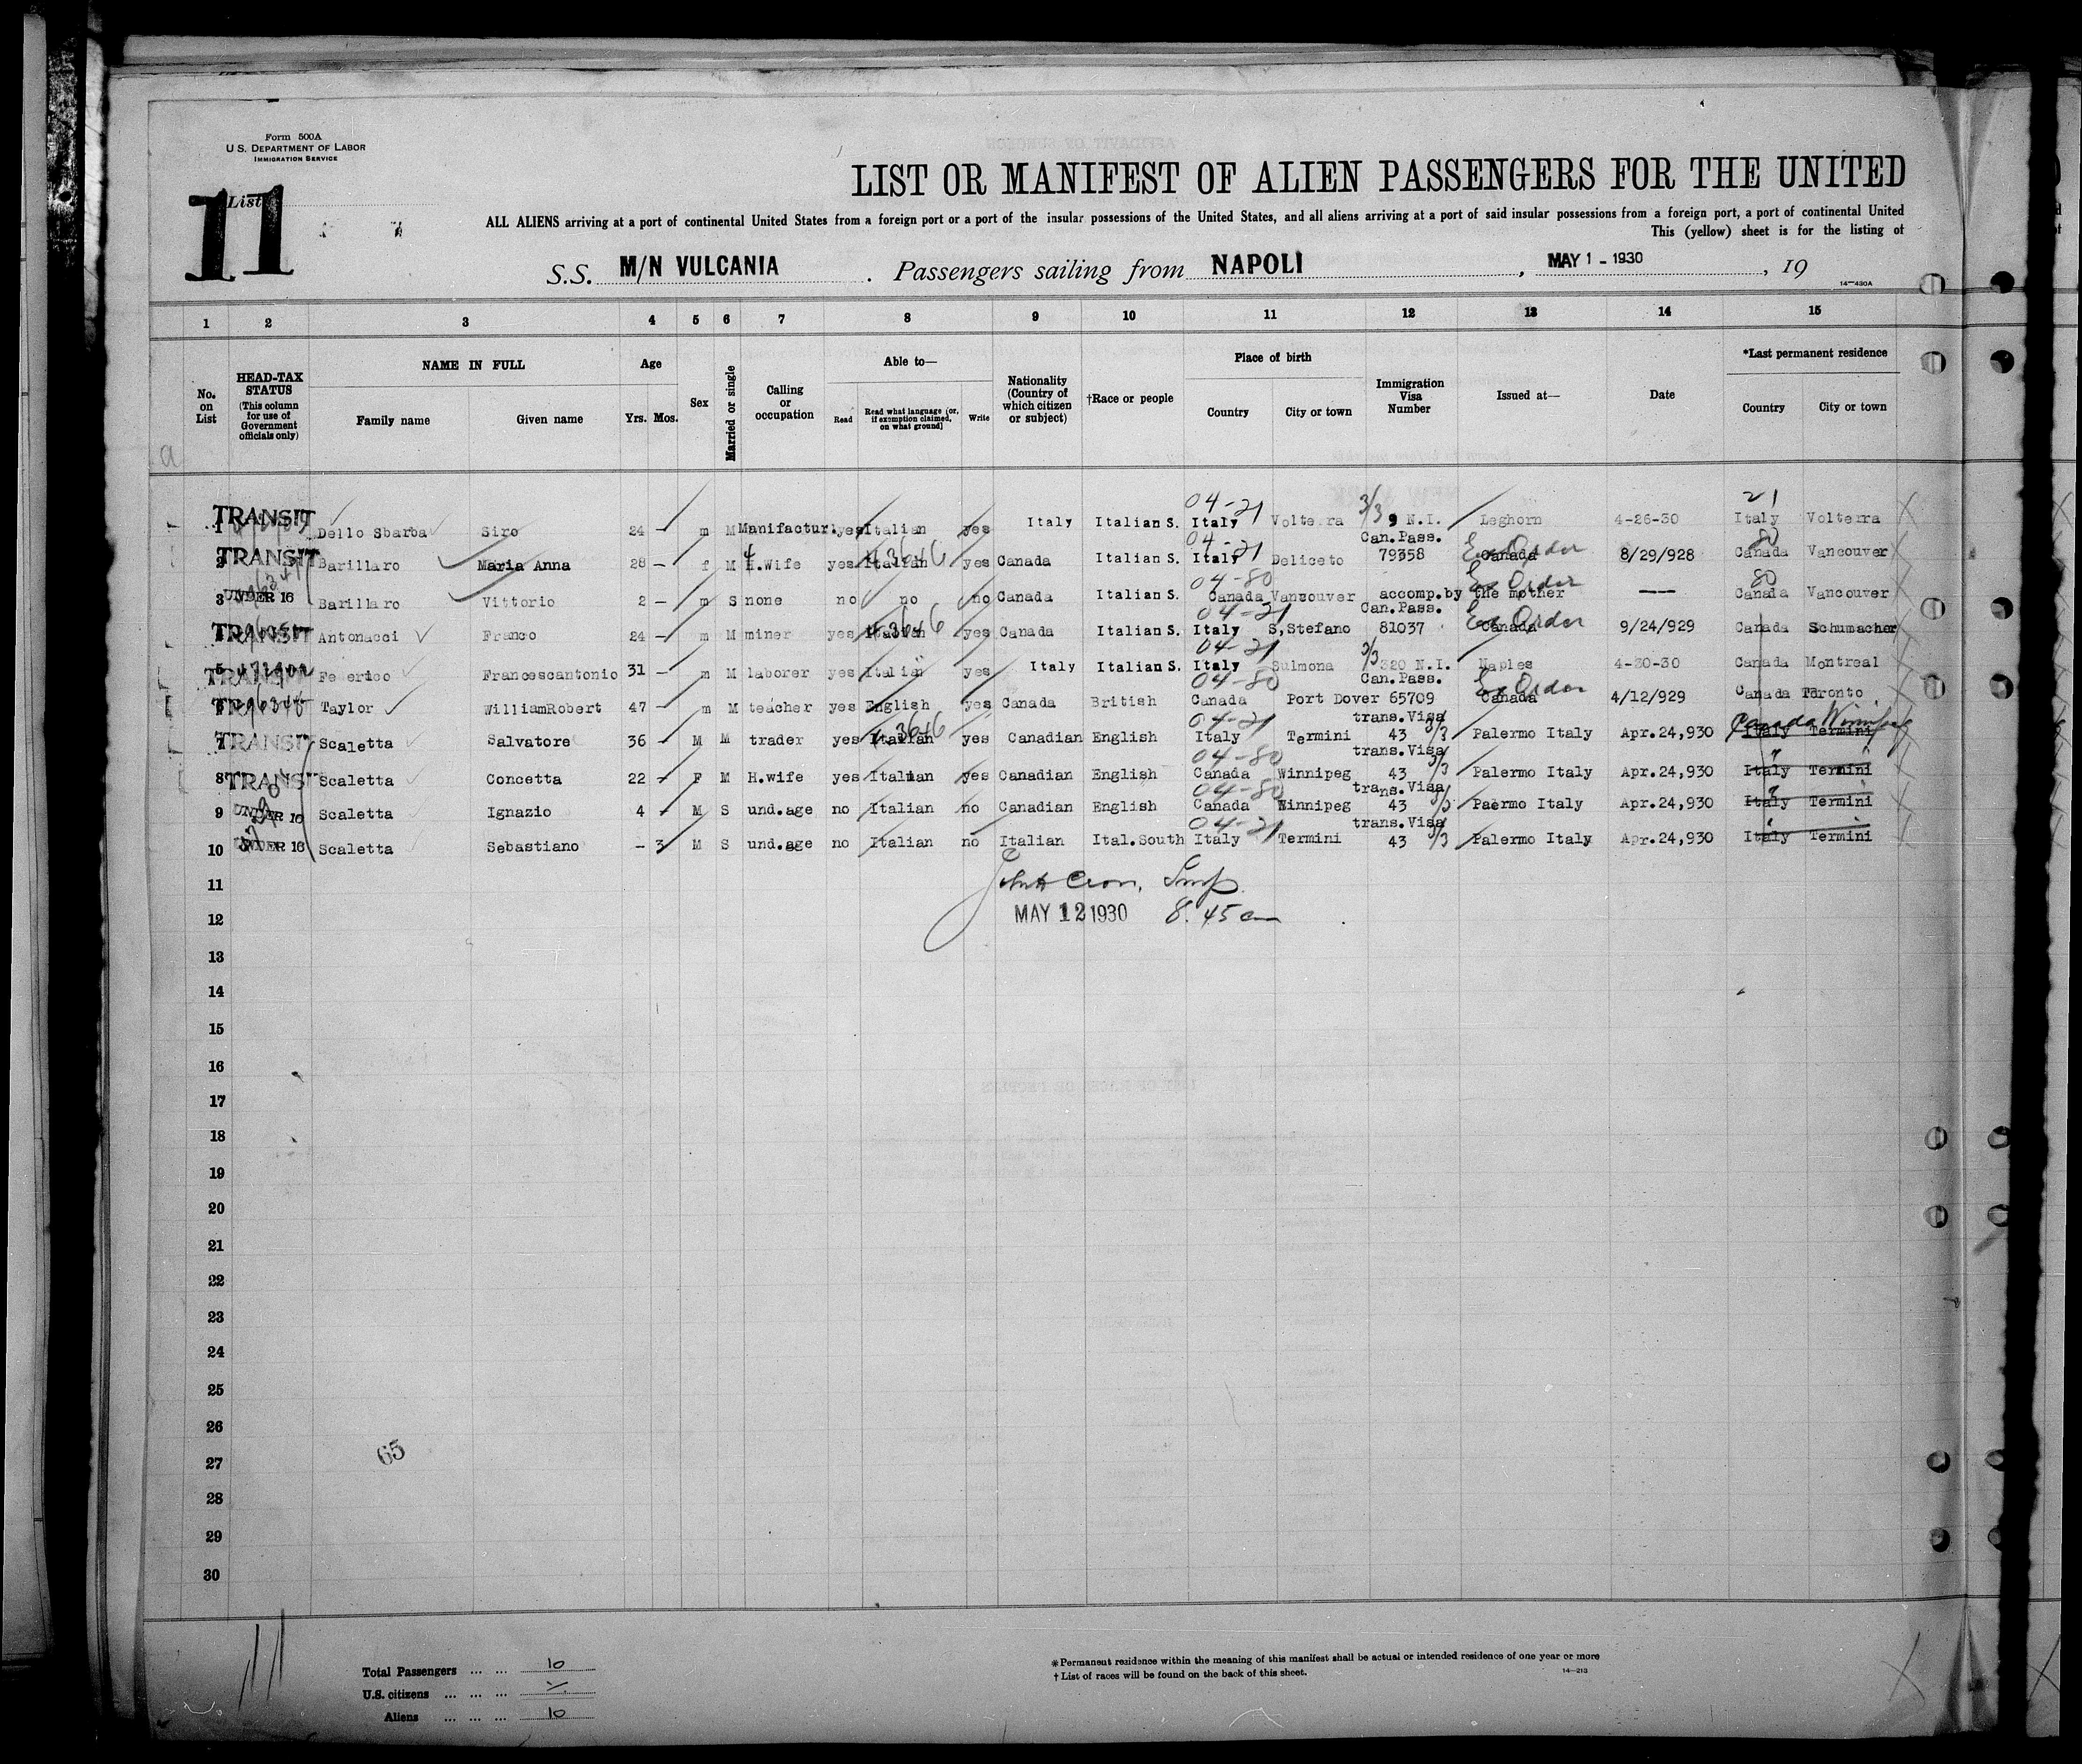 Form 500A
U S. DEPARTMENT OF LABOR
IMMIGRATION SERVICE
List 11
LIST OR MANIFEST OF ALIEN PASSENGERS FOR THE UNITED
ALL ALIENS arriving at a port of continental United States from a foreign port or a port of the insular possessions of the United States, and all aliens arriving at a port of said insular possessions from a foreign port, a port of continental United
This (yellow) sheet is for the listing of
S.S. M/N VULCANIA . Passengers sailing from NAPOLI , MAY 1 - 1930 , 19
14-430A
1 2 3 4 5 6 7 8 9 10 11 12 13 14 15
No. on List
HEAD-TAX STATUS (This column for use of Government officials only)
NAME IN FULL
Family name Given name
Age
Yrs. Mos.
Sex
Married or single
Calling or occupation
Able to—
Read Read what language [or, if exemption claimed, on what ground] Write
Nationality (Country of which citizen or subject)
†Race or people
Place of birth
Country City or town
Immigration Visa Number
Issued at—
Date
*Last permanent residence
Country City or town
04-21 3/3 21
1 TRANSIT Dello Sbarba Siro 24 - m M Manifactur. yes Italian yes Italy Italian S. Italy Volterra 9 N.I. Leghorn 4-26-30 Italy Volterra
04-21 Can.Pass. Ex Order 80
2 TRANSIT Barillaro Maria Anna 28 - f M H.Wife yes Italian yes Canada Italian S. Italy Deliceto 79358 Canada 8/29/928 Canada Vancouver
04-80 Ex Order 80
3 UNDER 16 Barillaro Vittorio 2 - m S none no no no Canada Italian S. Canada Vancouver accomp.by the mother — Canada Vancouver
04-21 Can.Pass. Ex Order
TRANSIT Antonacci Franco 24 - m M miner yes Italian yes Canada Italian S. Italy S,Stefano 81037 Canada 9/24/929 Canada Schumacher
04-21 3/3
5 TRANSIT Federico Francescantonio 31 - m M laborer yes Italian yes Italy Italian S. Italy Sulmona 320 N.I. Naples 4-30-30 Canada Montreal
04-80 Can.Pass. Ex Order
Taylor WilliamRobert 47 - m M teacher yes English yes Canada British Canada Port Dover 65709 Canada 4/12/929 Canada Toronto
04-21 trans.Visa Canada Winnipeg
7 TRANSIT Scaletta Salvatore 36 - M M trader yes Italian yes Canadian English Italy Termini 43 3/3 Palermo Italy Apr.24,930 Italy Termini
04-80 trans.Visa "
8 TRANSIT Scaletta Concetta 22 - F M H.wife yes Italian yes Canadian English Canada Winnipeg 43 3/3 Palermo Italy Apr.24,930 Italy Termini
04-80 trans.Visa "
9 UNDER 16 Scaletta Ignazio 4 - M S und.age no Italian no Canadian English Canada Winnipeg 43 3/3 Paermo Italy Apr.24,930 Italy Termini
04-21 trans.Visa "
10 UNDER 16 Scaletta Sebastiano - 3 M S und.age no Italian no Italian Ital.South Italy Termini 43 3/3 Palermo Italy Apr.24,930 Italy Termini
11
12 MAY 12 1930 8.45 am
13
14
15
16
17
18
19
20
21
22
23
24
25
26
27 65
28
29
30
Total Passengers ... ... 10
U.S. citizens ... ... ...
Aliens ... ... ... 10
*Permanent residence within the meaning of this manifest shall be actual or intended residence of one year or more
† List of races will be found on the back of this sheet.
14-213